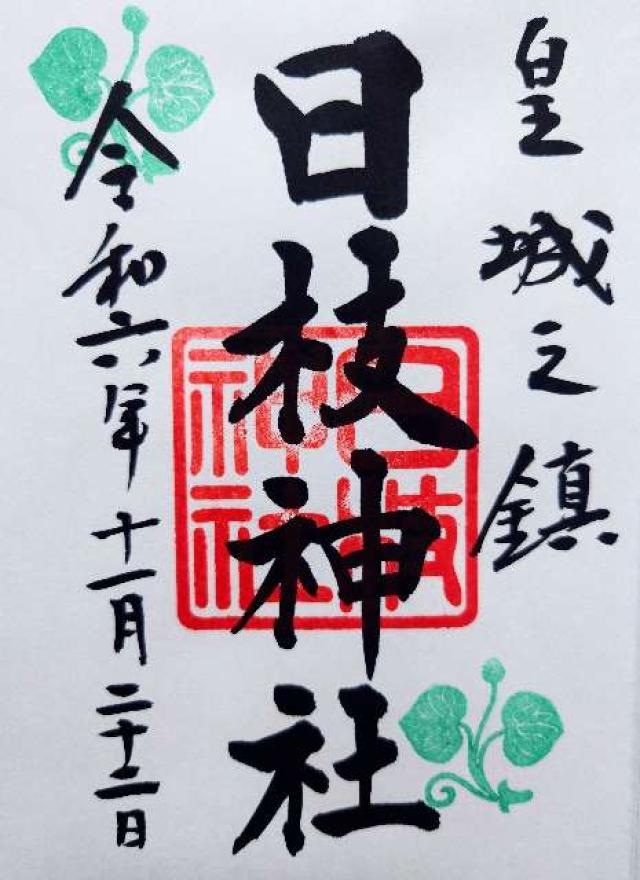 皇城之鎮
日枝神社
令和六年十一月二十二日
日枝
神社